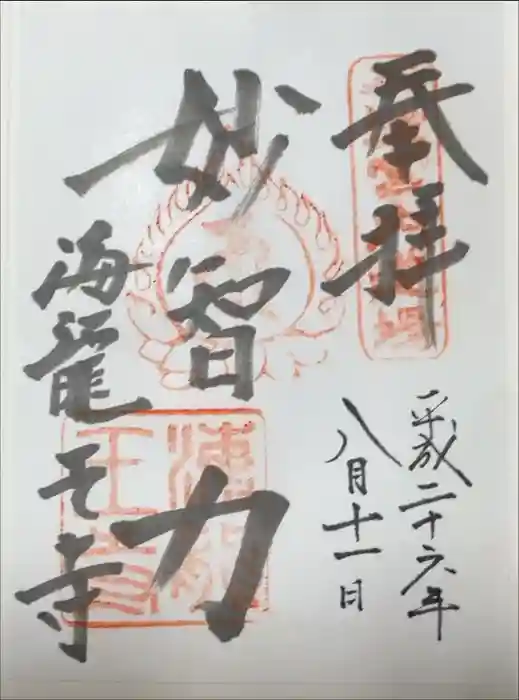 奉拝
平成二十六年
八月十一日
妙智力
海龍王寺